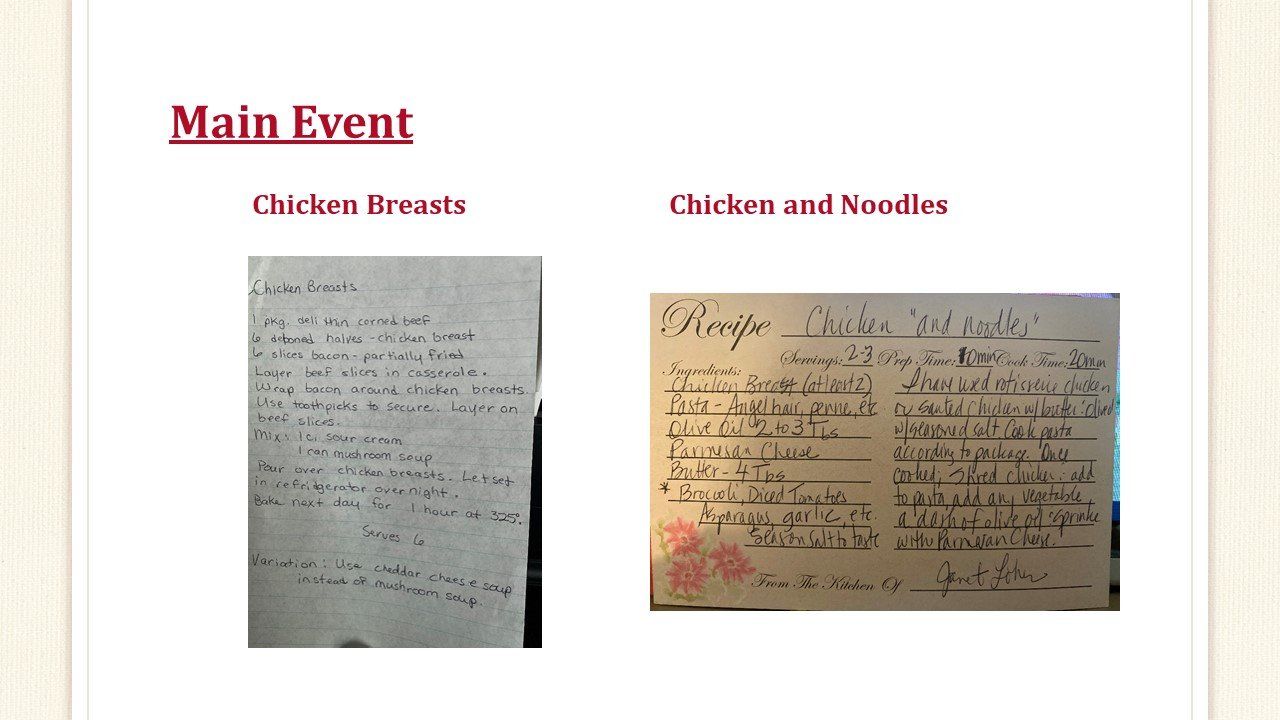 Main Event
Chicken Breasts
Chicken Breasts
1 pkg. deli thin corned beef
6 deboned halves - chicken breast
6 slices bacon - partially fried
Layer beef slices in casserole.
Wrap bacon around chicken breasts.
Use toothpicks to secure. Layer on
beef slices.
Mix: 1 c. sour cream
1 can mushroom soup
Pour over chicken breasts. Let set
in refrigerator overnight.
Bake next day for 1 hour at 325°.
Serves 6
Variation: Use cheddar cheese soup
instead of mushroom soup.
Chicken and Noodles
Recipe Chicken "and noodles"
Servings: 2-3 Prep Time: 10min Cook Time: 20min
Ingredients:
Chicken Breast (atleast 2)
Pasta - Angel hair, penne, etc
Olive Oil 2 to 3 Tbs
Parmesan Cheese
Butter - 4 Tbs
* Brocoli, Diced Tomatoes
Asparagus, garlic, etc.
Season salt to taste
I have used rotisserie chicken
or sautéd chicken w/butter
w/seasoned salt Cook pasta
according to package. Once
cooked, Shred chicken: add
to pasta, add any vegetable,
a dash of olive oil Sprinkle
with Parmesan Cheese.
From The Kitchen Of Janet